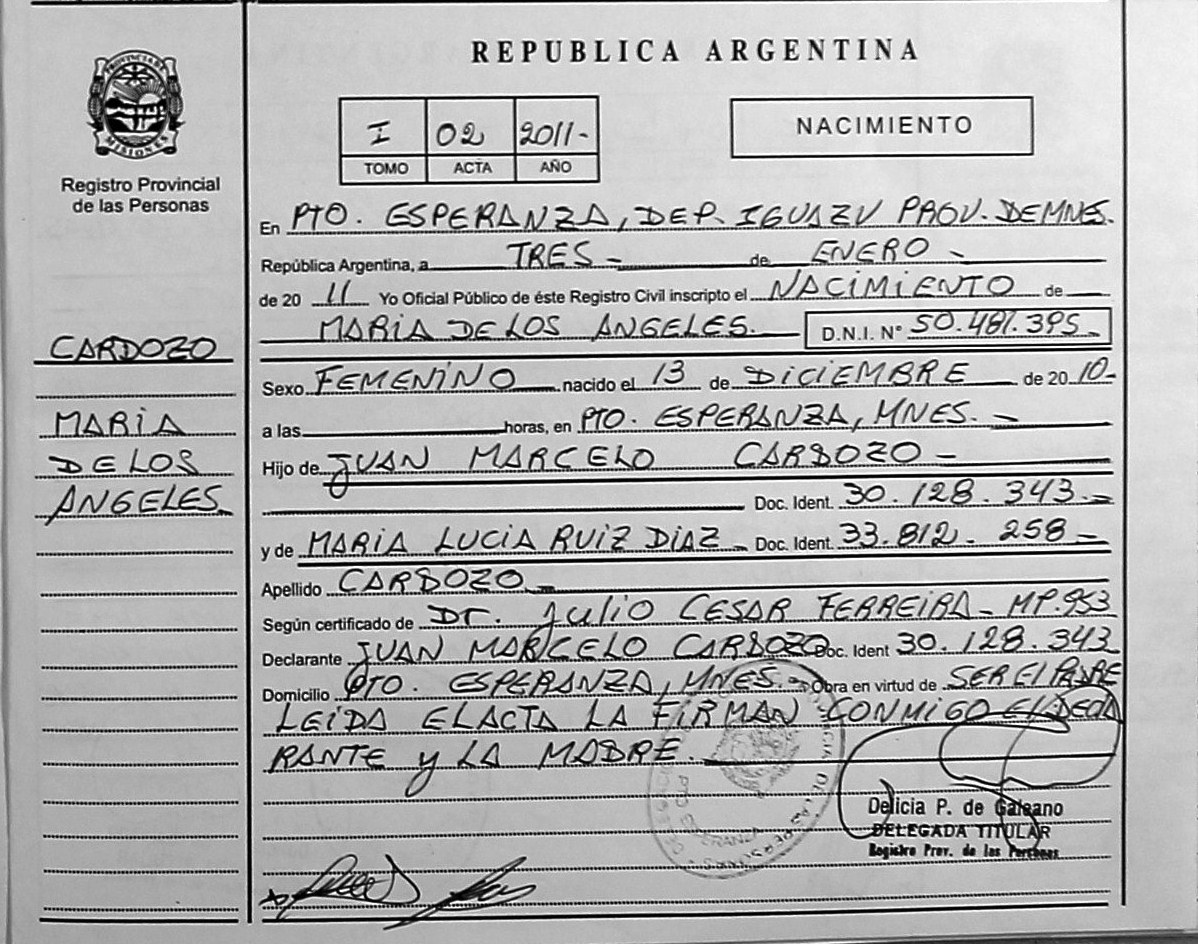 REPUBLICA ARGENTINA
PROVINCIA DE MISIONES
Registro Provincial
de las Personas
I 02 2011-
TOMO ACTA AÑO
NACIMIENTO
En PTO. ESPERANZA, DEP. IGUAZU PROV. DE MNES.
República Argentina, a TRES - de ENERO -
de 20 11 Yo Oficial Público de éste Registro Civil inscripto el NACIMIENTO de
MARIA DE LOS ANGELES. D.N.I. N° 50.481.395-
CARDOZO
MARIA
DE LOS
ANGELES
Sexo FEMENINO nacido el 13 de DICIEMBRE de 20 10-
a las horas, en PTO. ESPERANZA, MNES. -
Hijo de JUAN MARCELO CARDOZO -
Doc. Ident. 30.128.343.-
y de MARIA LUCIA RUIZ DIAZ - Doc. Ident. 33.812.258-
Apellido CARDOZO -
Según certificado de Dr. Julio CESAR FERREIRA - MP.953
Declarante JUAN MARCELO CARDOZO Doc. Ident 30.128.343
Domicilio PTO. ESPERANZA, MNES. - Obra en virtud de SER El PADRE
LEIDA EL ACTA LA FIRMAN CONMIGO El DECLA
RANTE y LA MADRE.
Delicia P. de Galeano
DELEGADA TITULAR
Registro Prov. de las Personas
PTO ESPERANZA